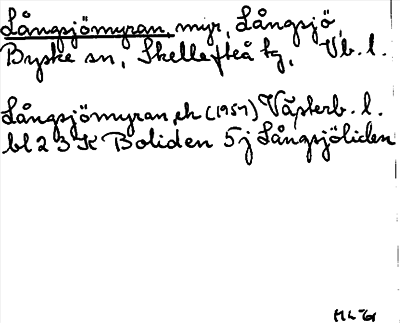 Långsjömyran, myr, Långsjö,
Byske sn, Skellefteå tg, Vb. l.
Långsjömyran, ek (1957) Västerb. l.
bl 23 K Boliden 5j Långsjöliden